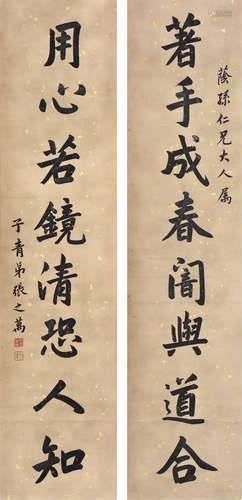 著手成春闇與道合
蔭孫仁兄大人屬
用心若鏡清恐人知
子青弟張之萬